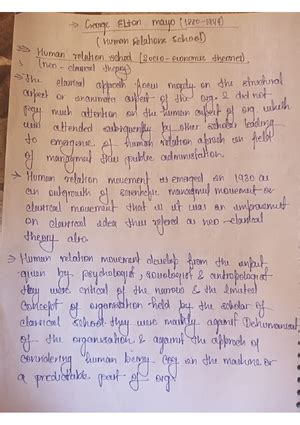 → George Elton mayo (1880-1949)
(human Relations School)
⇒ Human relation school (Socio-economic theories).
(neo-classical theory)
→ The classical approach focus majorly on the structural
aspect or inanimate aspect of the org. & did not
pay much attention on the human aspect of org. which
was attended subsequently by other scholar leading
to emergence of human relation aproach in field
of managment than public administration.
→ Human relation movement is emerged on 1930 as
an outgrowth of scientific managment movement or
classical movement that is it was an improvement
on classical idea thus refered as neo-classical
theory also.
⇒ Human relation movement develop from the input
given by psychologist, sociologist & antropologist
they were critical of the narrow & the limited
concept of organisation held by the scholar of
classical school they were mainly against Dehumanisat
of the organisation & against the approach of
considering human being cog in the machine or
a predictable part of orgn